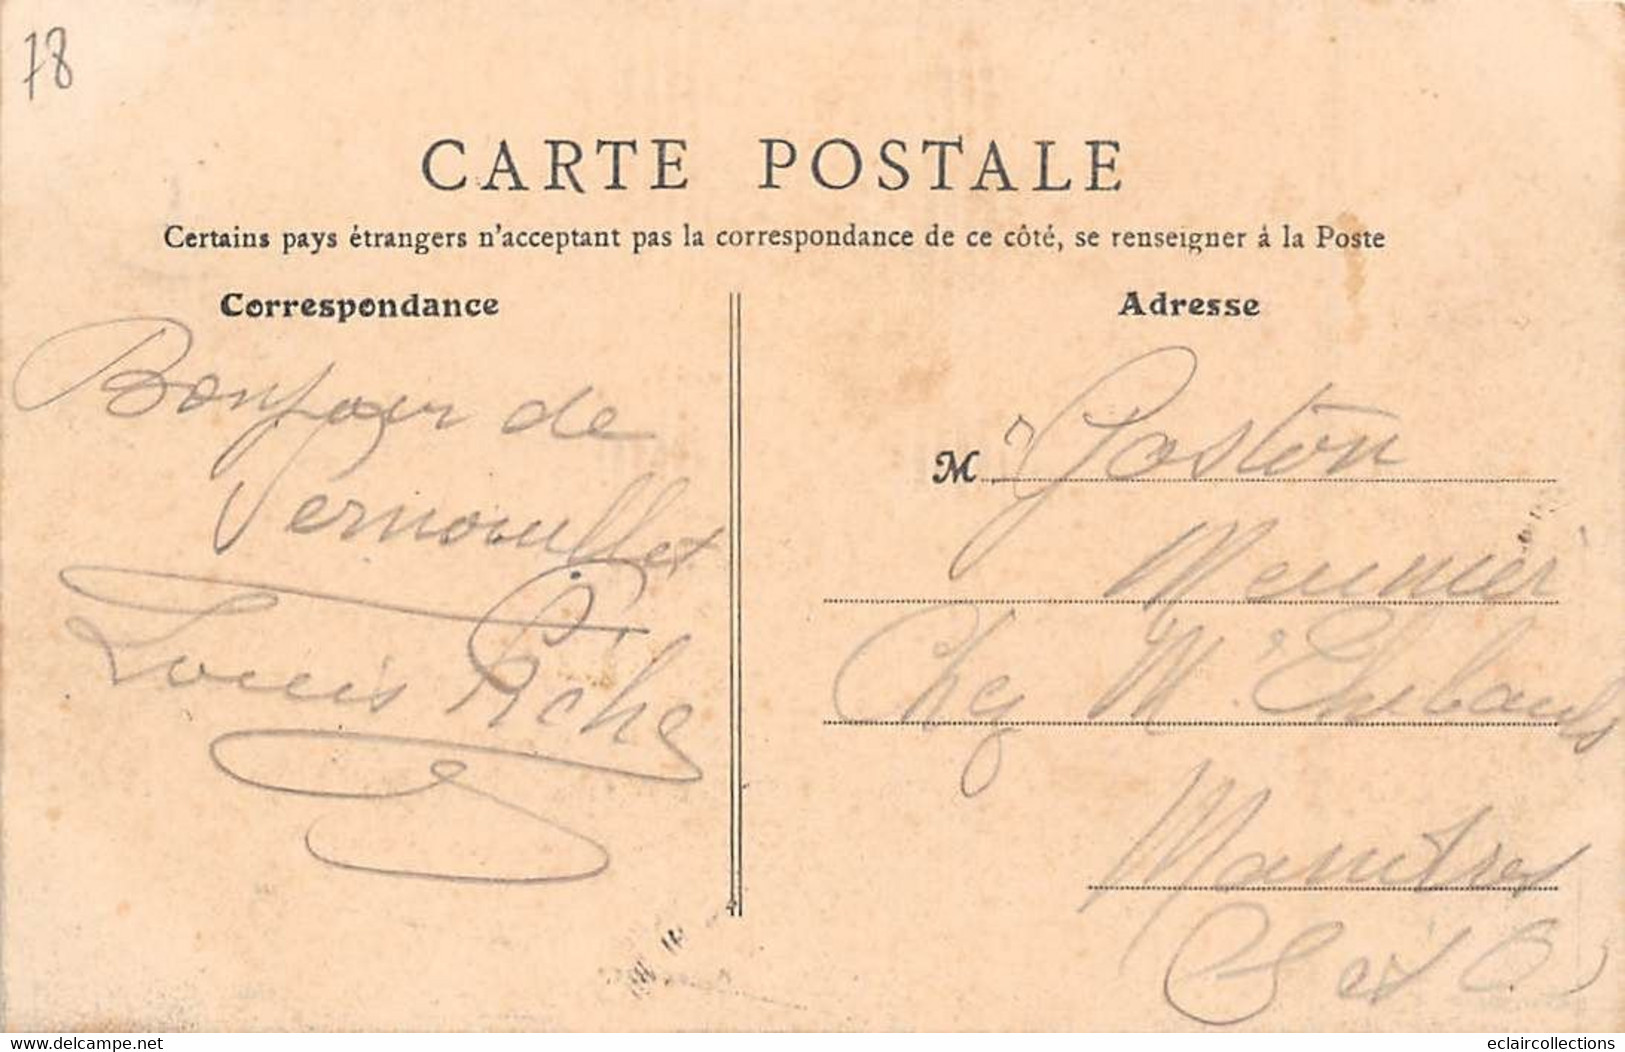 78
CARTE POSTALE
Certains pays étrangers n'acceptant pas la correspondance de ce côté, se renseigner à la Poste
Correspondance
Bonjour de
Vernouillet
Louis
Adresse
M Gaston
Meunier
Chez Mr
Mantes
S et O
www.delcampe.net
eclaircollections